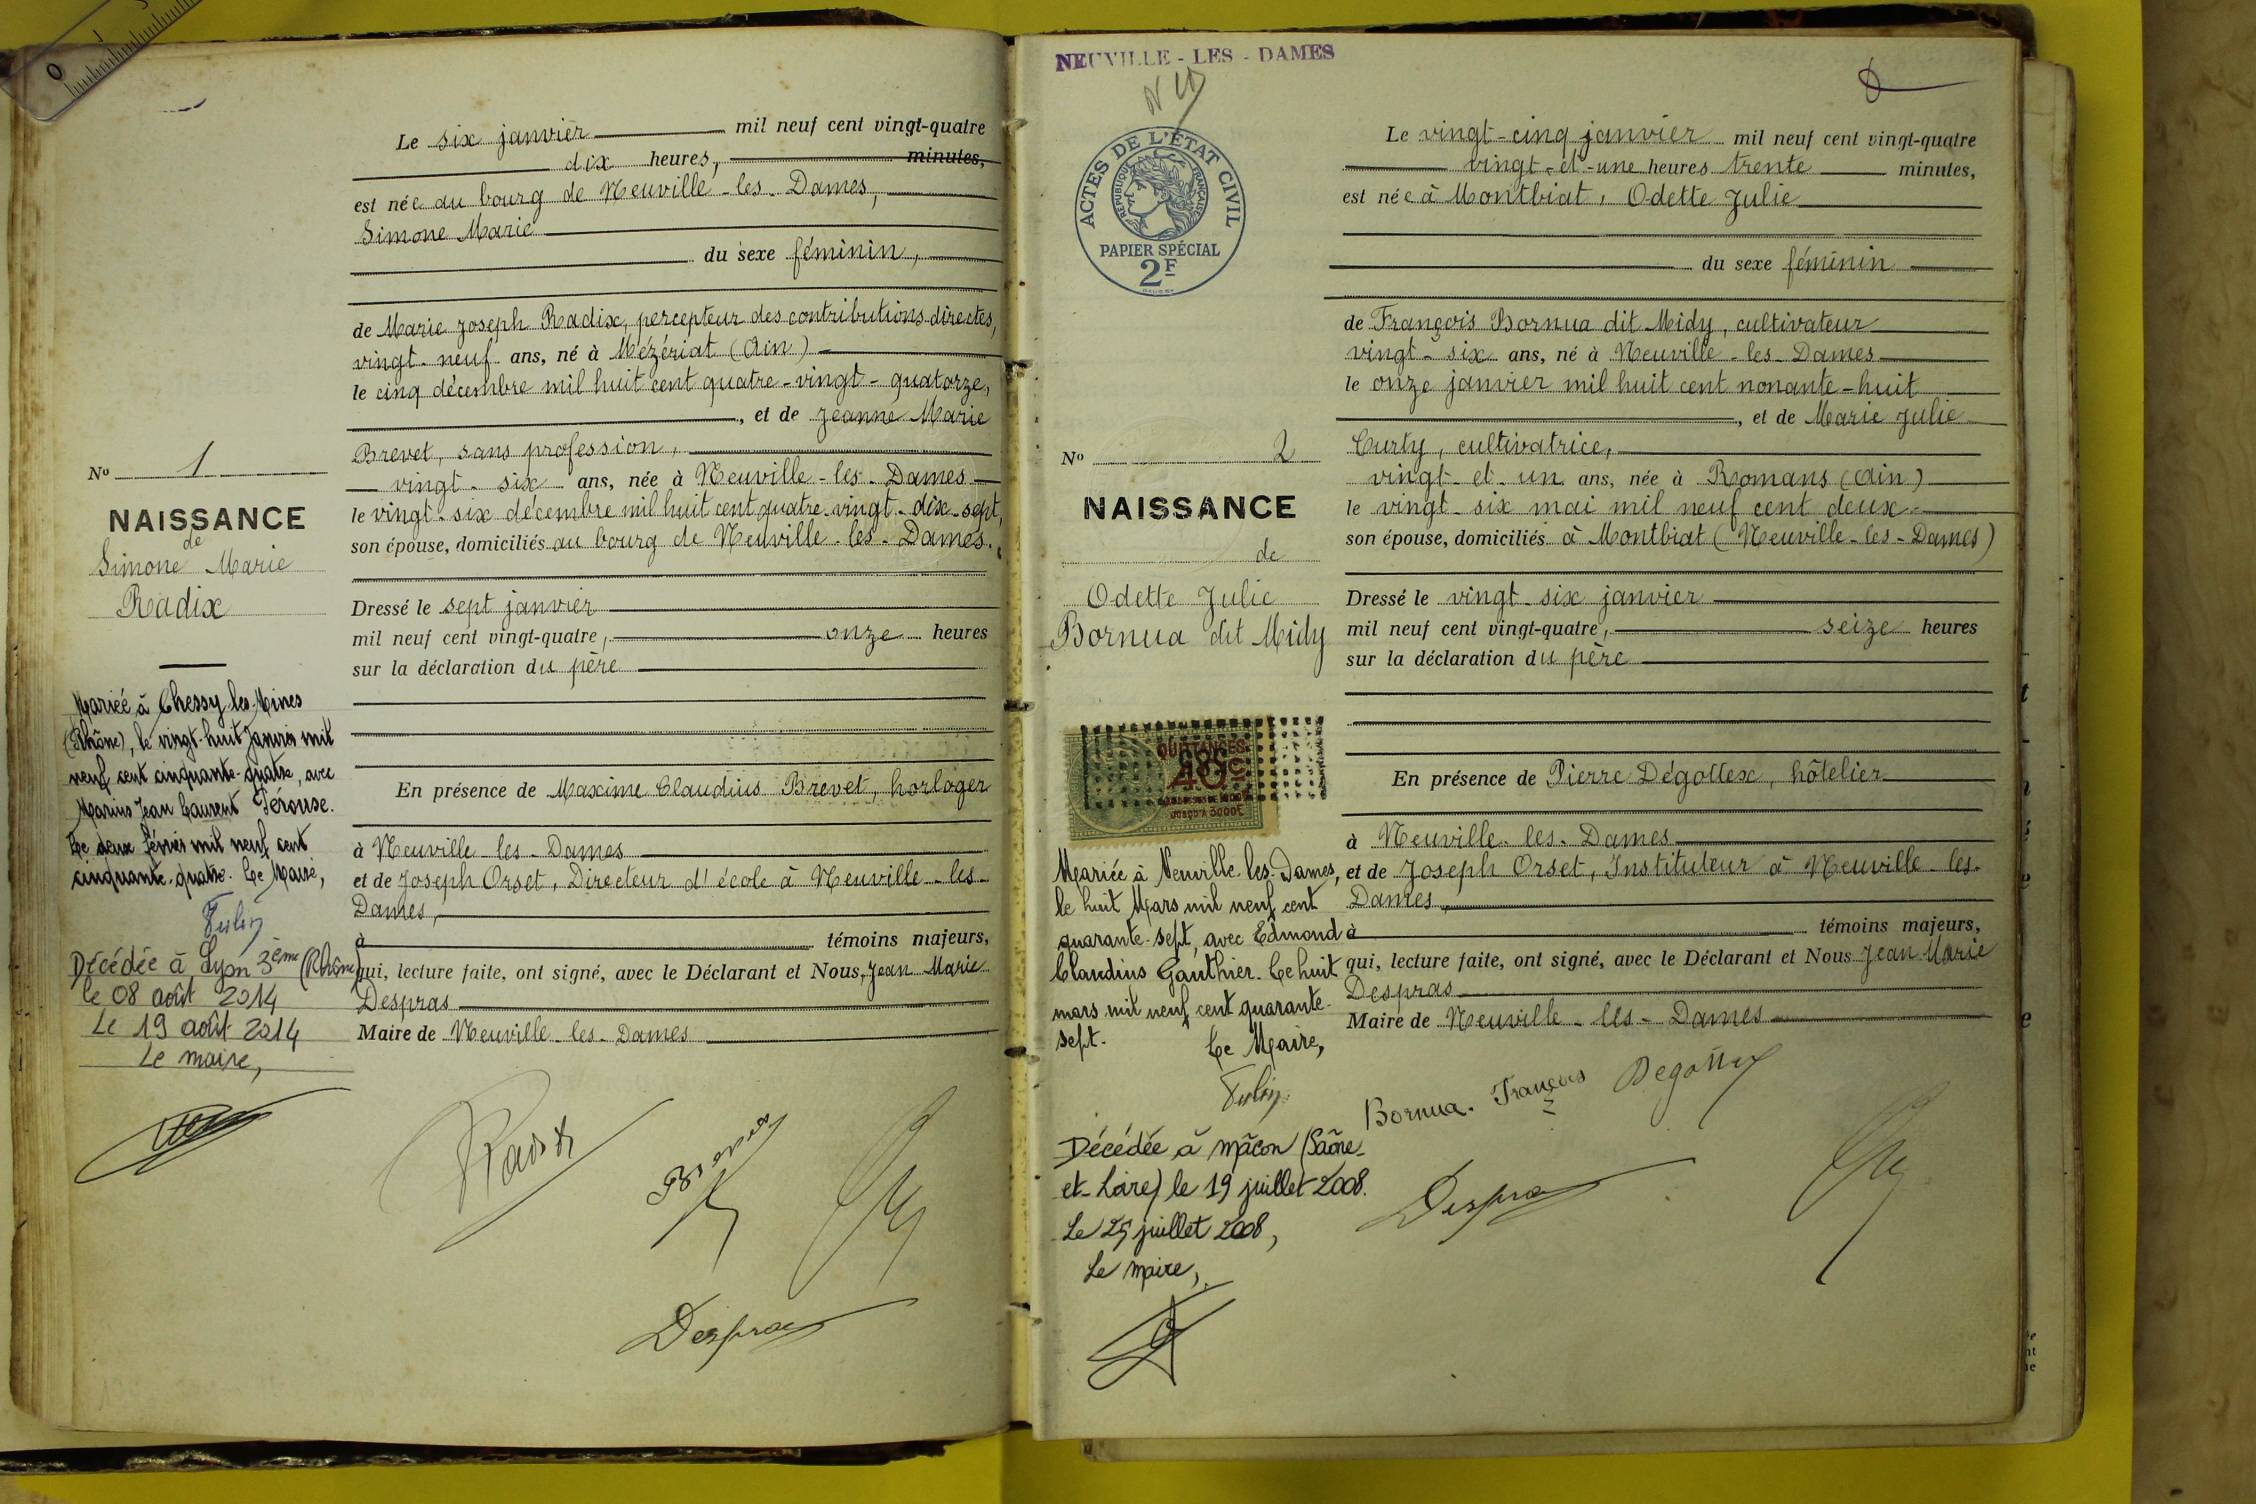 Le six janvier mil neuf cent vingt-quatre
dix heures, minutes,
est née au bourg de Neuville-les-Dames,
Simone Marie
du sexe féminin,
de Marie Joseph Radix, percepteur des contributions directes,
vingt-neuf ans, né à Mézériat (Ain)
le cinq décembre mil huit cent quatre-vingt-quatorze,
, et de Jeanne Marie
Brevet, sans profession,
vingt-six ans, née à Neuville-les-Dames
le vingt-six décembre mil huit cent quatre-vingt-dix-sept,
son épouse, domiciliés au bourg de Neuville-les-Dames.
Dressé le sept janvier
mil neuf cent vingt-quatre, onze heures
sur la déclaration du père
En présence de Maxime Claudius Brevet, horloger
à Neuville-les-Dames
et de Joseph Orset, Directeur d'école à Neuville-les-
Dames,
à témoins majeurs,
qui, lecture faite, ont signé, avec le Déclarant et Nous, Jean Marie
Despras
Maire de Neuville-les-Dames
Radix
Brevet
Despras
No 1
NAISSANCE
de
Simone Marie
Radix
Mariée à Chessy-les-Mines
(Rhône), le vingt-huit Janvier mil
neuf cent cinquante-quatre, avec
Marius Jean Laurent Pérouse.
Le deux février mil neuf cent
cinquante-quatre. Le Maire,
Décédée à Lyon 3ème (Rhône)
le 08 août 2014
Le 19 août 2014
Le maire,
NEUVILLE - LES - DAMES
ACTES DE L'ÉTAT CIVIL
RÉPUBLIQUE FRANÇAISE
PAPIER SPÉCIAL
2F
No 2
NAISSANCE
de
Odette Julie
Bornua dit Midy
QUITTANCES
Mariée à Neuville-les-Dames,
le huit Mars mil neuf cent
quarante-sept, avec Edmond
Claudius Gauthier. Le huit
mars mil neuf cent quarante-
sept.
Le Maire,
Décédée à Mâcon (Saône-
et-Loire) le 19 juillet 2008.
Le 25 juillet 2008,
Le maire,
Le vingt-cinq janvier mil neuf cent vingt-quatre
vingt-et-une heures trente minutes,
est née à Montbiat, Odette Julie
du sexe féminin
de François Bornua dit Midy, cultivateur
vingt-six ans, né à Neuville-les-Dames
le onze janvier mil huit cent nonante-huit
, et de Marie Julie
Curty, cultivatrice,
vingt-et-un ans, née à Romans (Ain)
le vingt-six mai mil neuf cent deux
son épouse, domiciliés à Montbiat (Neuville-les-Dames)
Dressé le vingt-six janvier
mil neuf cent vingt-quatre, seize heures
sur la déclaration du père
En présence de Pierre Dégottex, hôtelier
à Neuville-les-Dames
et de Joseph Orset, Instituteur à Neuville-les-
Dames,
à témoins majeurs,
qui, lecture faite, ont signé, avec le Déclarant et Nous Jean-Marie
Despras
Maire de Neuville-les-Dames
Bornua. François Degottex
Despras